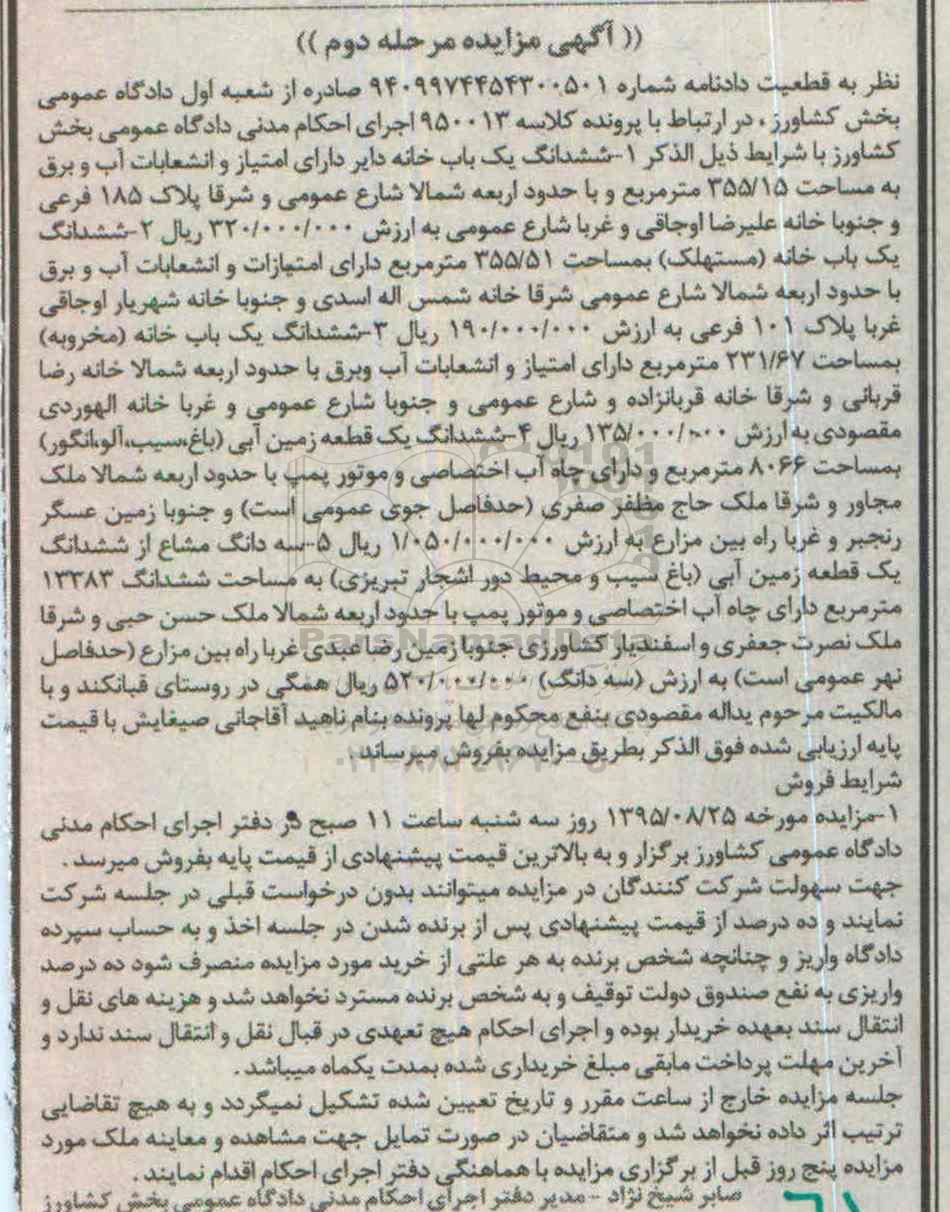 (( آگهی مزایده مرحله دوم ))
نظر به قطعیت دادنامه شماره ۹۴۰۹۹۷۴۴۵۴۳۰۰۵۰۱ صادره از شعبه اول دادگاه عمومی
بخش کشاورز ، در ارتباط با پرونده کلاسه ۹۵۰۰۱۳ اجرای احکام مدنی دادگاه عمومی بخش
کشاورز با شرایط ذیل الذکر ۱-ششدانگ یک باب خانه دایر دارای امتیاز و انشعابات آب و برق
به مساحت ۳۵۵/۱۵ مترمربع و با حدود اربعه شمالا شارع عمومی و شرقا پلاک ۱۸۵ فرعی
و جنوبا خانه علیرضا اوجاقی و غربا شارع عمومی به ارزش ۳۲۰/۰۰۰/۰۰۰ ریال ۲-ششدانگ
یک باب خانه (مستهلک) بمساحت ۳۵۵/۵۱ مترمربع دارای امتیازات و انشعابات آب و برق
با حدود اربعه شمالا شارع عمومی شرقا خانه شمس اله اسدی و جنوبا خانه شهریار اوجاقی
غربا پلاک ۱۰۱ فرعی به ارزش ۱۹۰/۰۰۰/۰۰۰ ریال ۳-ششدانگ یک باب خانه (مخروبه)
بمساحت ۲۳۱/۶۷ مترمربع دارای امتیاز و انشعابات آب وبرق با حدود اربعه شمالا خانه رضا
قربانی و شرقا خانه قربانزاده و شارع عمومی و جنوبا شارع عمومی و غربا خانه الهوردی
مقصودی به ارزش ۱۳۵/۰۰۰/۰۰۰ ریال ۴-ششدانگ یک قطعه زمین آبی (باغ،سیب،آلو،انگور)
بمساحت ۸۰۶۶ مترمربع و دارای چاه آب اختصاصی و موتور پمپ با حدود اربعه شمالا ملک
مجاور و شرقا ملک حاج مظفر صفری (حدفاصل جوی عمومی است) و جنوبا زمین عسگر
رنجبر و غربا راه بین مزارع به ارزش ۱/۰۵۰/۰۰۰/۰۰۰ ریال ۵-سه دانگ مشاع از ششدانگ
یک قطعه زمین آبی (باغ سیب و محیط دور اشجار تبریزی) به مساحت ششدانگ ۱۳۳۸۳
مترمربع دارای چاه آب اختصاصی و موتور پمپ با حدود اربعه شمالا ملک حسن حبی و شرقا
ملک نصرت جعفری و اسفندیار کشاورزی جنوبا زمین رضا عبدی غربا راه بین مزارع (حدفاصل
نهر عمومی است) به ارزش (سه دانگ) ۵۲۰/۰۰۰/۰۰۰ ریال همگی در روستای قبانکند و با
مالکیت مرحوم یداله مقصودی بنفع محکوم لها پرونده بنام ناهید آقاجانی صیغایش با قیمت
پایه ارزیابی شده فوق الذکر بطریق مزایده بفروش میرساند.
شرایط فروش
۱-مزایده مورخه ۱۳۹۵/۰۸/۲۵ روز سه شنبه ساعت ۱۱ صبح در دفتر اجرای احکام مدنی
دادگاه عمومی کشاورز برگزار و به بالاترین قیمت پیشنهادی از قیمت پایه بفروش میرسد .
جهت سهولت شرکت کنندگان در مزایده میتوانند بدون درخواست قبلی در جلسه شرکت
نمایند و ده درصد از قیمت پیشنهادی پس از برنده شدن در جلسه اخذ و به حساب سپرده
دادگاه واریز و چنانچه شخص برنده به هر علتی از خرید مورد مزایده منصرف شود ده درصد
واریزی به نفع صندوق دولت توقیف و به شخص برنده مسترد نخواهد شد و هزینه های نقل و
انتقال سند بعهده خریدار بوده و اجرای احکام هیچ تعهدی در قبال نقل و انتقال سند ندارد و
آخرین مهلت پرداخت مابقی مبلغ خریداری شده بمدت یکماه میباشد .
جلسه مزایده خارج از ساعت مقرر و تاریخ تعیین شده تشکیل نمیگردد و به هیچ تقاضایی
ترتیب اثر داده نخواهد شد و متقاضیان در صورت تمایل جهت مشاهده و معاینه ملک مورد
مزایده پنج روز قبل از برگزاری مزایده با هماهنگی دفتر اجرای احکام اقدام نمایند .
صابر شیخ نژاد - مدیر دفتر اجرای احکام مدنی دادگاه عمومی بخش کشاورز
ParsNamadData